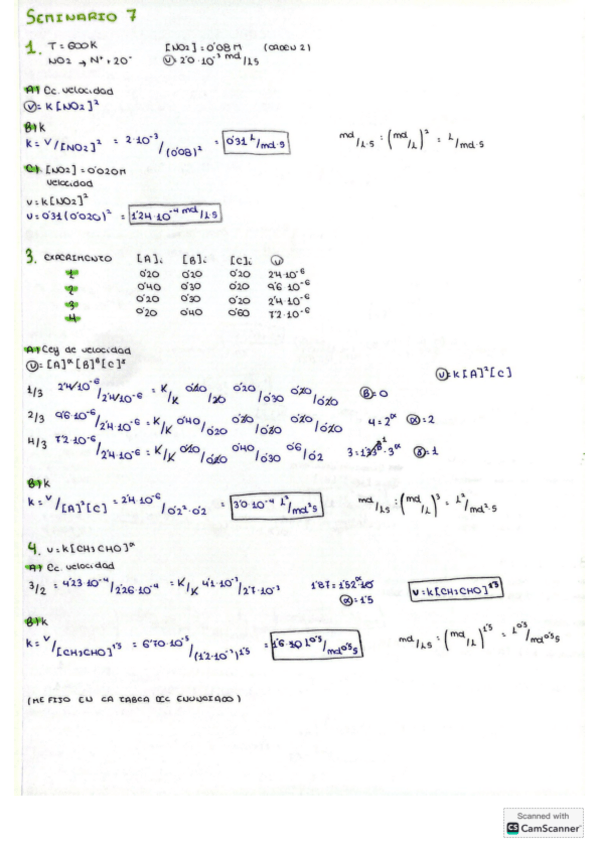 SEMINARIO 7
1. T = 600K [NO2] = 0'08 M (ORDEN 2)
NO2 → N· + 2O· v = 2'0·10⁻³ mol/L·S
A) Ec. velocidad
v = K [NO2]²
B) K
K = V/[NO2]² = 2·10⁻³/(0'08)² = 0'31 L/mol·S mol/L·S : (mol/L)² = L/mol·S
C) [NO2] = 0'020M
velocidad
v = k[NO2]²
v = 0'31(0'020)² = 1'24·10⁻⁴ mol/L·S
3. EXPERIMENTO [A]i [B]i [C]i v
1 0'20 0'20 0'20 2'4·10⁻⁶
2 0'40 0'30 0'20 9'6·10⁻⁶
3 0'20 0'30 0'20 2'4·10⁻⁶
4 0'20 0'40 0'60 7'2·10⁻⁶
A) Ley de velocidad
v = [A]ᵅ [B]ᵝ [C]ᵟ
v = K [A]² [C]
1/3 2'4·10⁻⁶/2'4·10⁻⁶ = K/K 0'20/0'30 β = 0
2/3 9'6·10⁻⁶/2'4·10⁻⁶ = K/K 0'40/0'20 4 = 2ᵅ α = 2
4/3 7'2·10⁻⁶/2'4·10⁻⁶ = K/K 0'40/0'30 0'6/0'2 = 1
B) K
K = V/[A]²[C] = 2'4·10⁻⁶/0'2²·0'2 = 3'0·10⁻⁴ L²/mol²S mol/LS : (mol/L)³ = L²/mol²·S
4. v = k[CH3CHO]ᵅ
A) Ec. velocidad
3/2 = 4'23·10⁻⁴/2'26·10⁻⁴ = K/K 4'1·10⁻³/2'7·10⁻³ 1'87 = 1'52ᵅ V = K[CH3CHO]¹'⁵
α = 1'5
B) K
K = V/[CH3CHO]¹'⁵ = 6'70·10⁻⁵/(1'2·10⁻³)¹'⁵ = 1'6·10 L⁰'⁵/mol⁰'⁵S mol/LS : (mol/L)¹'⁵ = L⁰'⁵/mol⁰'⁵S
(ME FIJO EN LA TABLA DEL ENUNCIADO)
Scanned with
CS CamScanner